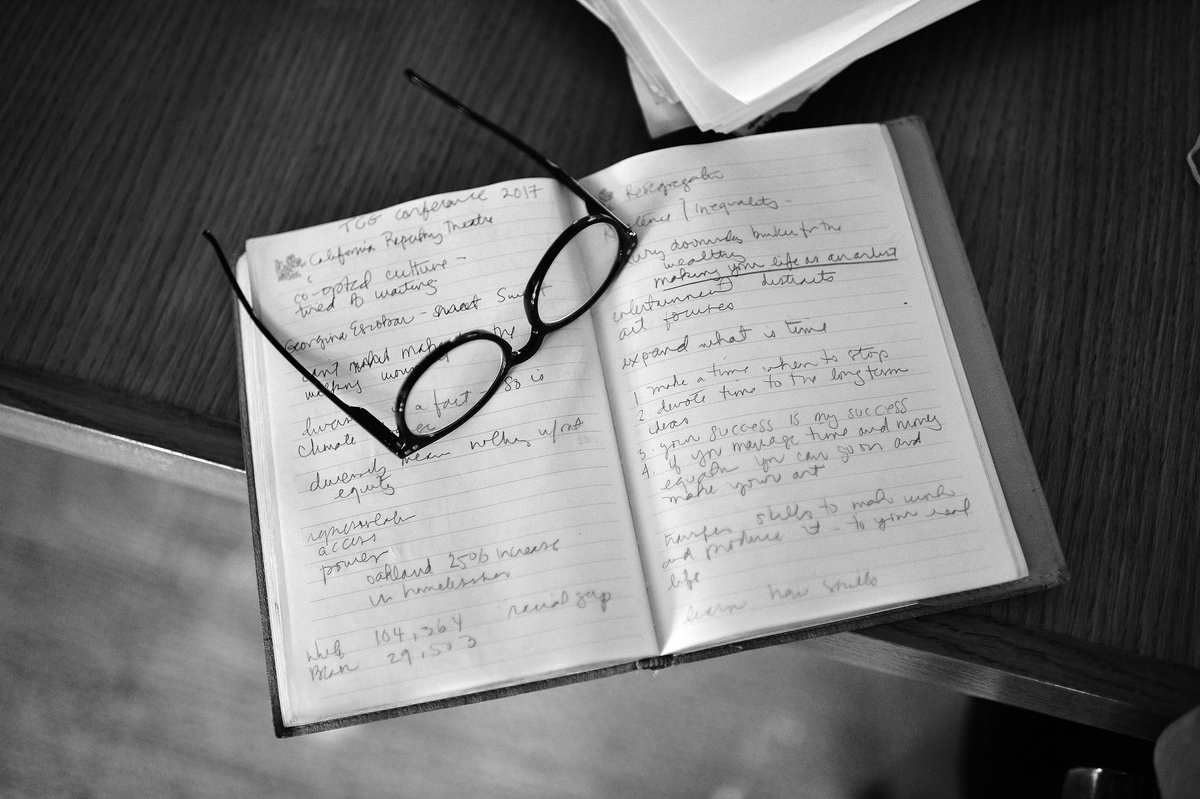 TCG conference 2017
California Repertory Theatre
co-opted culture -
tired of waiting
Georgina Escobar - Sweet
can't market the
is a fact so is
climate
diversity mean nothing w/out
equity
access
power
oakland 25% increase
in homelessness
racial gap
White 104,364
Black 29,503
Resegregation
/ Inequality -
doomsday bunker for the
wealthy
making your life as an artist
entertainment distracts
art focuses
expand what is time
1. make a time when to stop
2. devote time to the longterm
ideas
3. your success is my success
4. if you manage time and money
equally you can go on and
make your art
transfer skills to make work
and produce it - to your real
life
learn how skills